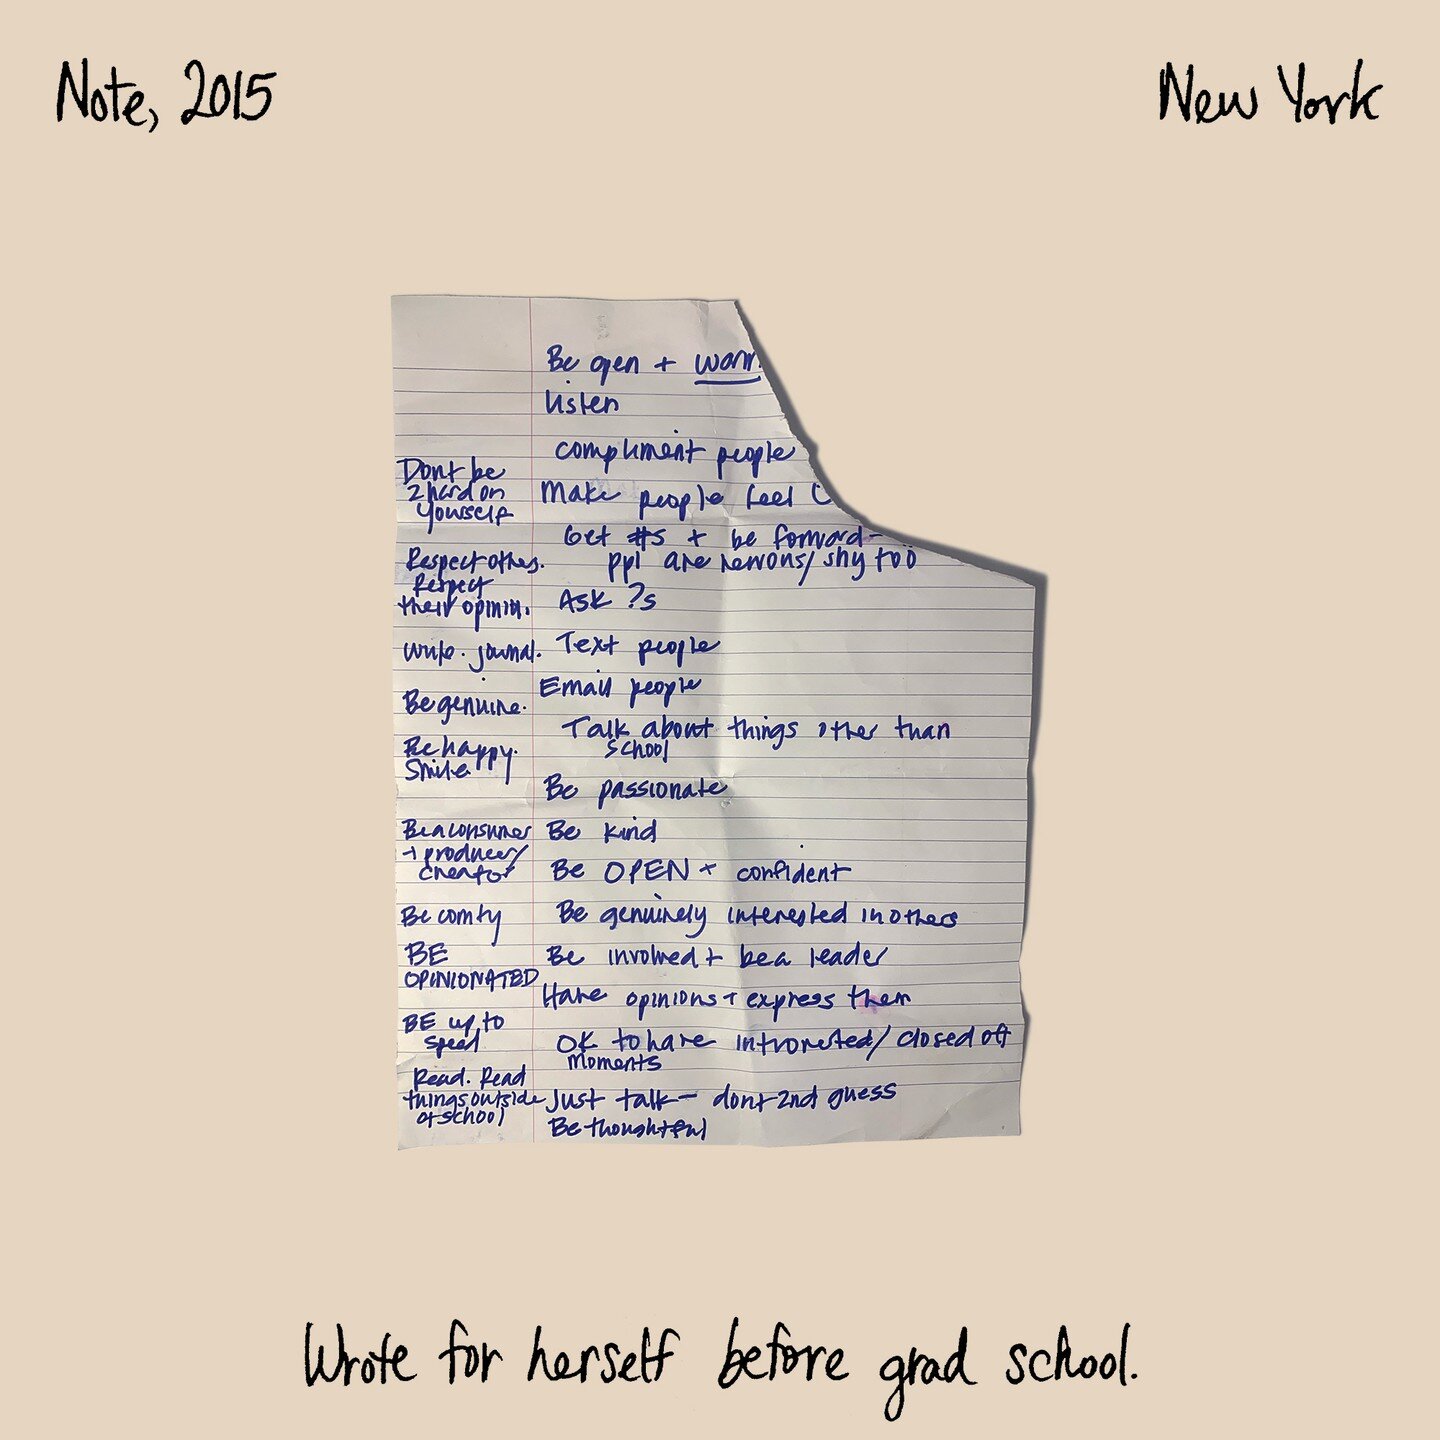 Note, 2015
New York
Be open + warm
listen
compliment people
Make people feel
Get #s + be forward-
ppl are nervous/ shy too
Ask ?s
Text people
Email people
Talk about things other than
school
Be passionate
Be kind
Be OPEN + confident
Be genuinely interested in others
Be involved + be a leader
Have opinions + express them
OK to have introverted/ closed off
moments
Just talk - dont 2nd guess
Be thoughtful
Dont be
2 hard on
yourself
Respect others.
Respect
their opinin.
write. journal.
Be genuine.
Be happy.
Smile.
Be a consumer
+ producer/
creator
Be comfy
BE
OPINIONATED
BE up to
speed
Read. Read
things outside
of school
Wrote for herself before grad school.